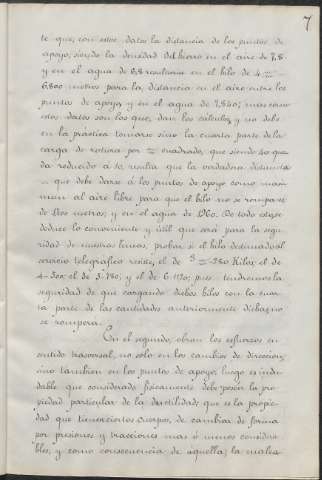 7
te que, con estos datos la distancia de los puntos de
apoyo, siendo la densidad del hierro en el aire de 7,8
y en el agua de 6,8 resultaria en el hilo de 4
6.800 metros para la distancia en el aire entre los
puntos de apoyo, y en el agua de 7,840; mas como
estos datos son los que dan los cálculos, y no debe
en la práctica tomarse sino la cuarta parte de la
carga de rotura por cuadrado, que siendo 40 que-
da reducido á 10, resulta que la verdadera distancia
que debe darse á los puntos de apoyo como maxi-
mum al aire libre para que el hilo no se rompa es
de metros; y en el agua de 1960. De todo esto se
deduce lo conveniente y útil que será para la segu-
ridad de nuestras lineas, probar si el hilo destinado al
servicio telegráfico resiste, el de 5 Kilos, el de
4 el de 3 y el de 6 pues tendremos la
seguridad de que cargando dichos hilos con la cuar-
ta parte de las cantidades anteriormente dichas, no
se romperá.
En el segundo, obran los esfuerzos en
sentido trasversal, no solo en los cambios de direccion,
sino tambien en los puntos de apoyo; luego es indu-
dable que considerado fisicamente debe poseer la pro-
piedad particular de la ductilidad que es la propie-
dad que tienen ciertos cuerpos, de cambiar de forma
por presiones y tracciones mas ó menos considera-
bles, y como consecuencia de aquella, la malea